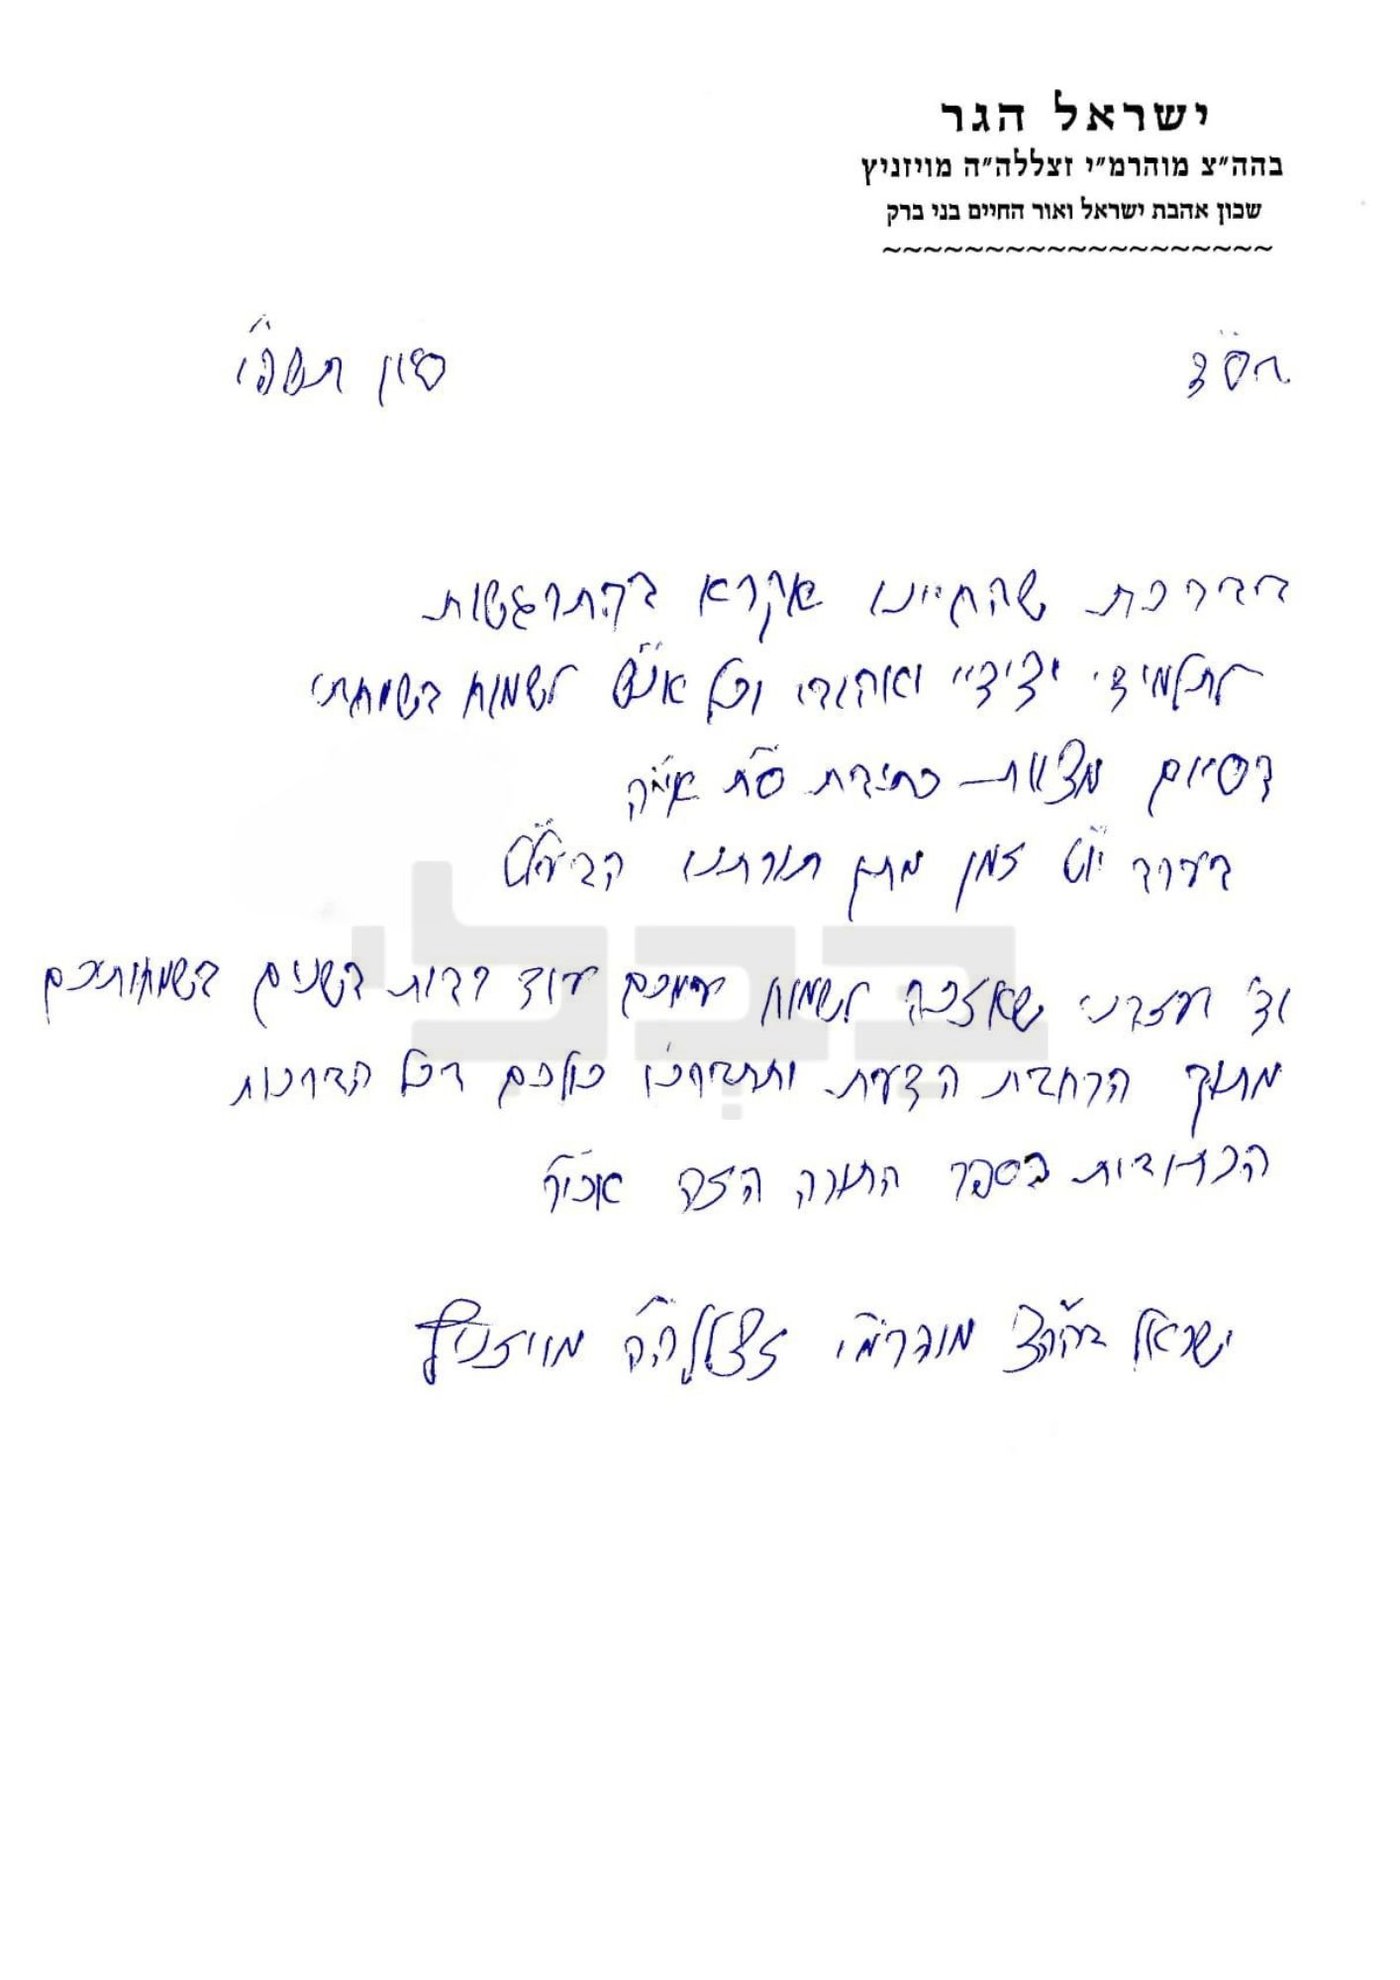 ישראל הגר
בהה"צ מוהרמ"י זצללה"ה מויזניץ
שכון אהבת ישראל ואור החיים בני ברק
~~~~~~~~~~~~~~~~~~~
בס"ד סיון תשפ"ו
בברכת שהחיינו אקרא בהתרגשות
לתלמידי ידידיי ואהובי וכל אנ"ש לשמוח בשמחתי
בסיום מצוות כתיבת ס"ת אי"ה
בערב יו"ט זמן מתן תורתנו הבעל"ט
וד' יעזרני שאזכה לשמוח עמכם עוד רבות בשנים בשמחותיכם
מתוך הרחבת הדעת ותתברכו כולכם בכל הברכות
הכתובות בספר התורה הזה אכי"ר
ישראל בהה"צ מוהרמ"י זצללה"ה מויזניץ
בבלי